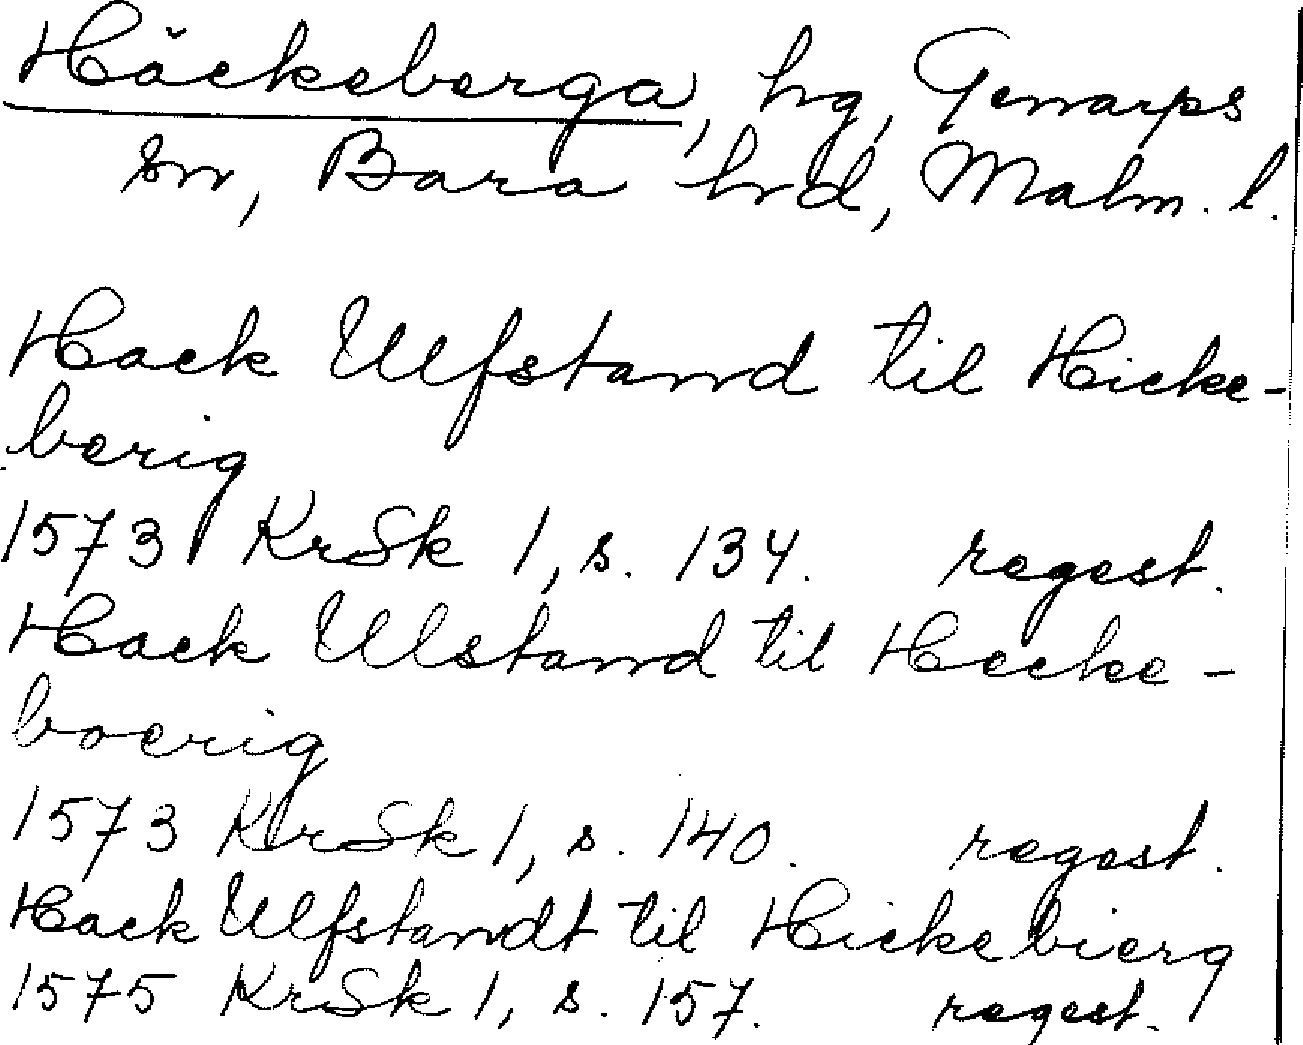 Häckeberga, hg, Genarps
sn, Bara hrd, Malm. l.
Hack Ulfstand til Hicke-
berig
1573 KrSk 1, s. 134. regest.
Hack Ulstand til Hecke-
boerig
1573 KrSk 1, s. 140. regest.
Hack Ulfstandt til Hickebierg
1575 KrSk 1, s. 157. regest.